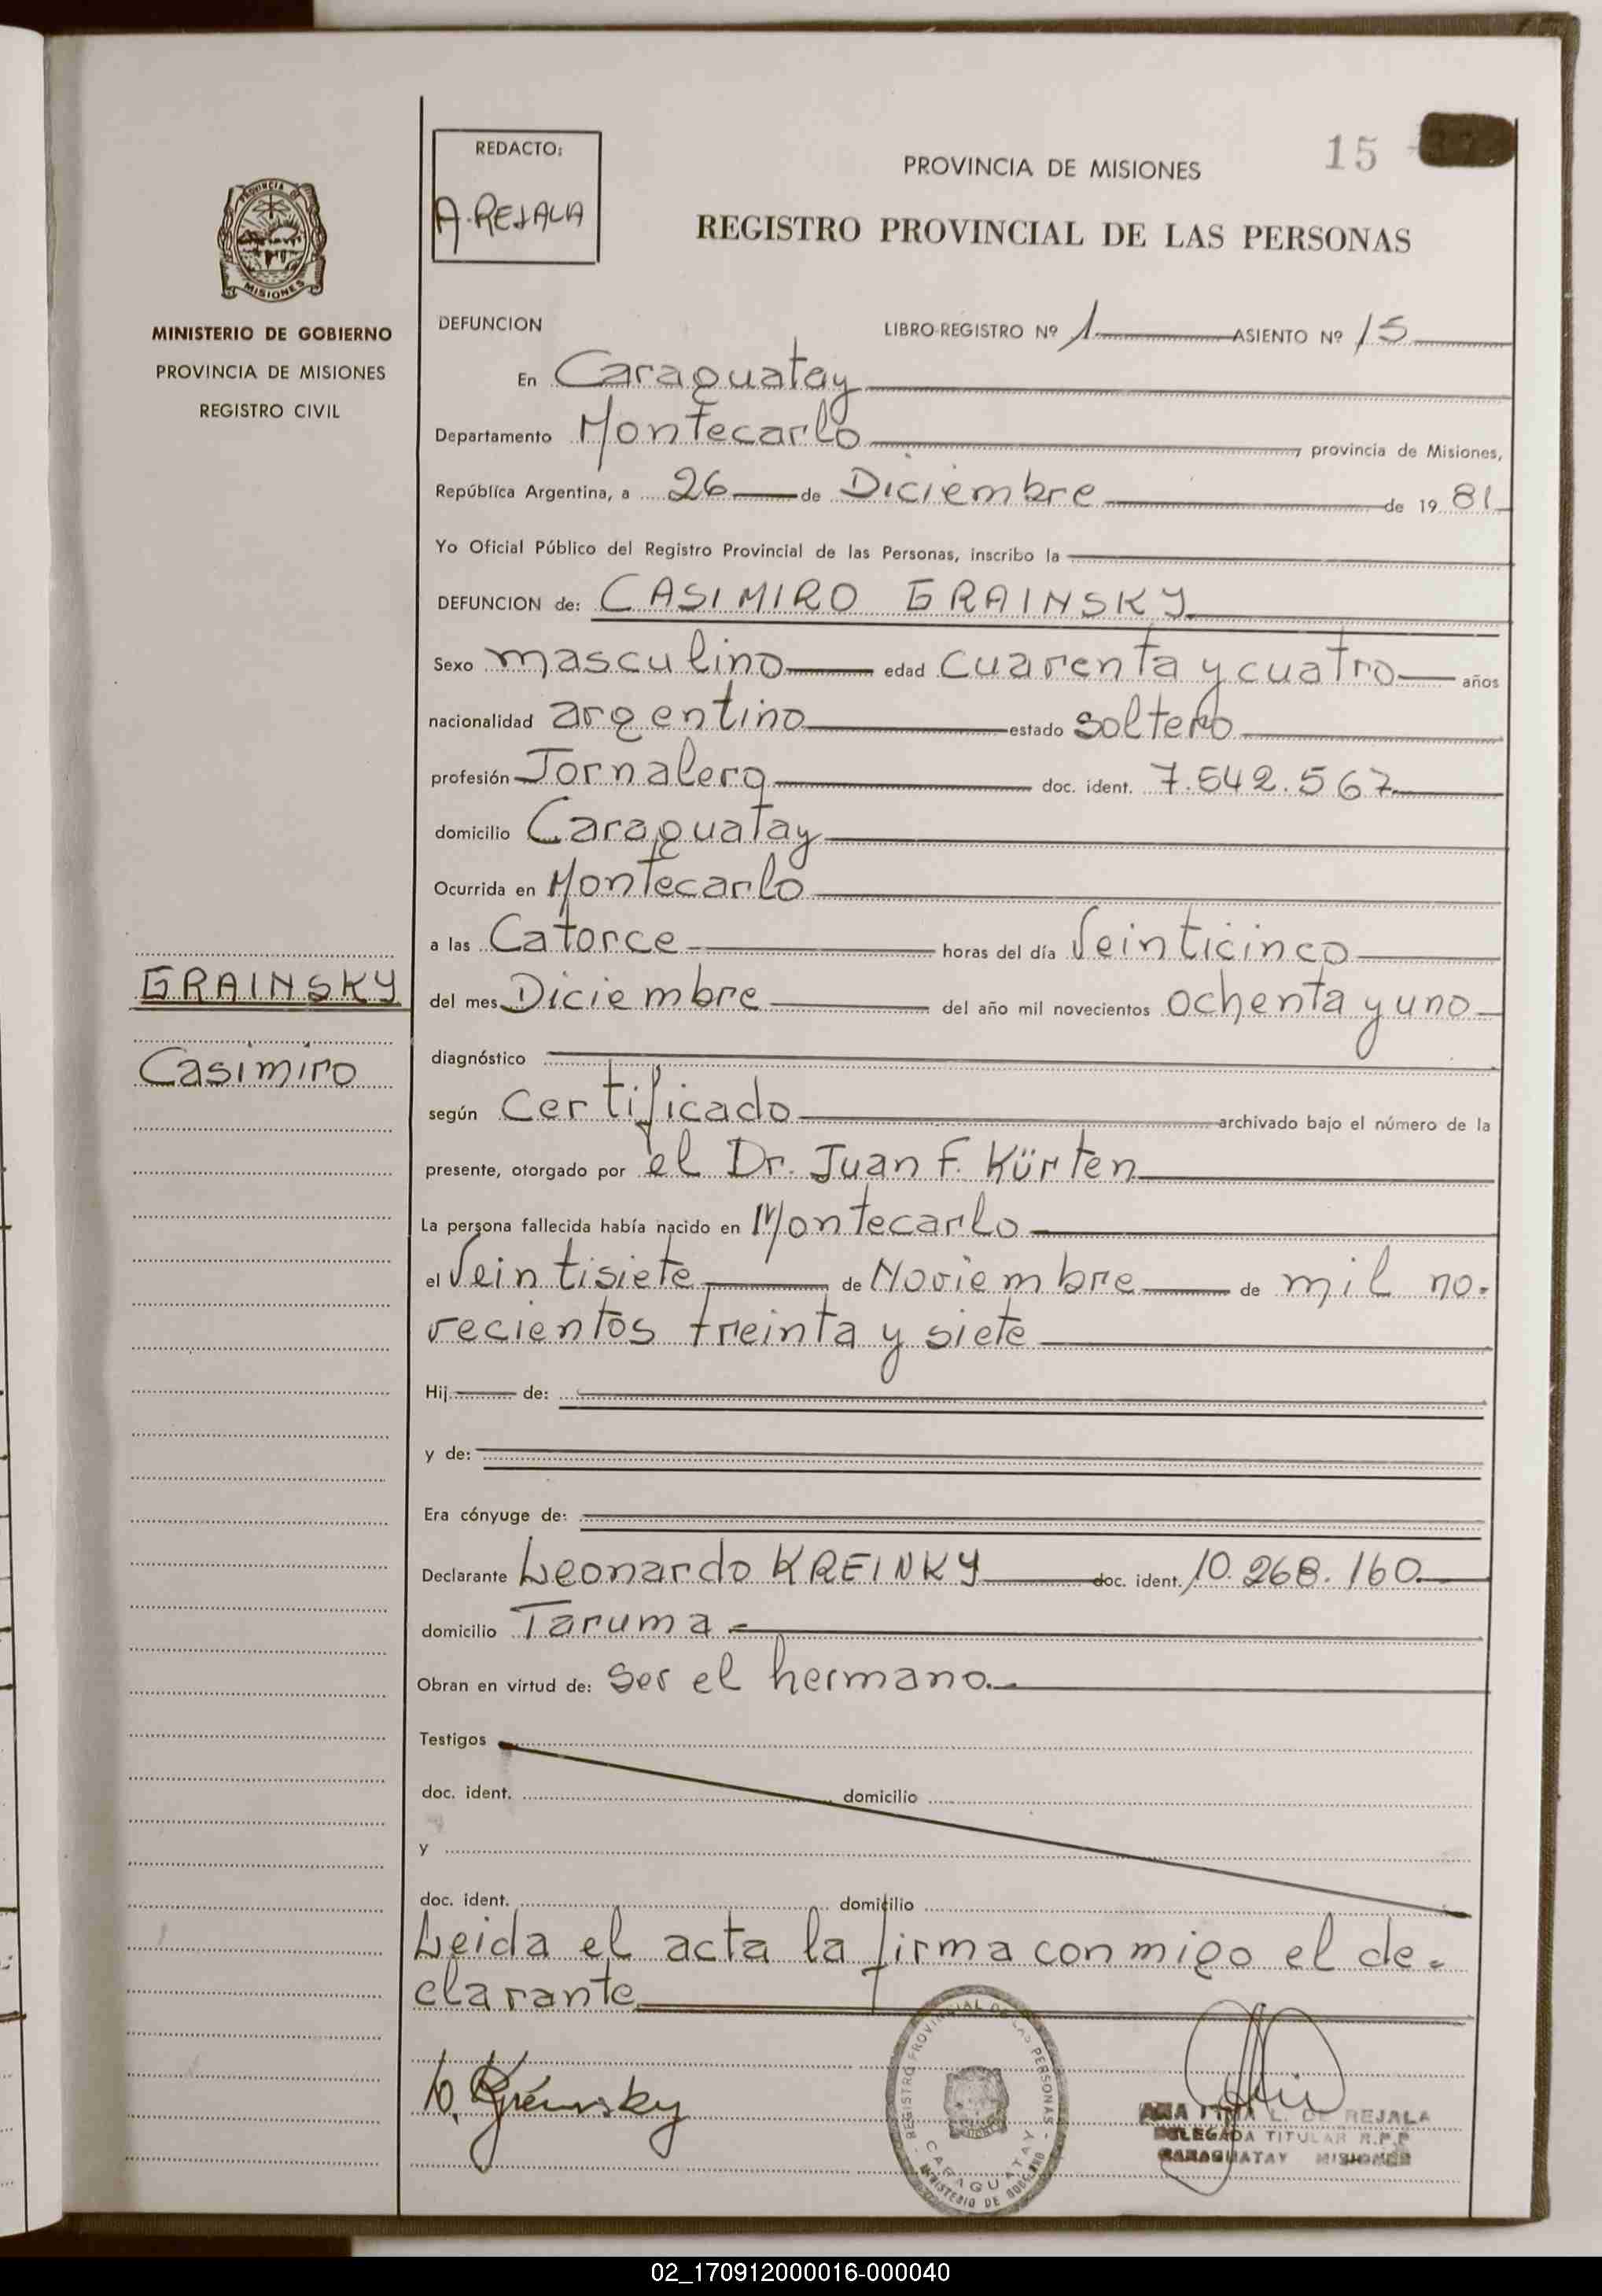 REDACTO:
A. REJALA
PROVINCIA DE MISIONES
15
REGISTRO PROVINCIAL DE LAS PERSONAS
PROVINCIA DE
MISIONES
MINISTERIO DE GOBIERNO
PROVINCIA DE MISIONES
REGISTRO CIVIL
DEFUNCION LIBRO-REGISTRO Nº 1 ASIENTO Nº 15
En Caraguatay
Departamento Montecarlo, provincia de Misiones,
República Argentina, a 26 de Diciembre de 1981
Yo Oficial Público del Registro Provincial de las Personas, inscribo la
DEFUNCION de: CASIMIRO GRAINSKY
Sexo masculino edad cuarenta y cuatro años
nacionalidad argentino estado soltero
profesión Jornalero doc. ident. 7.542.567
domicilio Caraguatay
Ocurrida en Montecarlo
a las Catorce horas del día Veinticinco
del mes Diciembre del año mil novecientos ochenta y uno
GRAINSKY
Casimiro
diagnóstico
según Certificado archivado bajo el número de la
presente, otorgado por el Dr. Juan F. Kürten
La persona fallecida había nacido en Montecarlo
el Veintisiete de Noviembre de mil no-
vecientos treinta y siete
Hij de:
y de:
Era cónyuge de:
Declarante Leonardo KREINKY doc. ident. 10.268.160
domicilio Taruma
Obran en virtud de: ser el hermano.
Testigos
doc. ident. domicilio
y
doc. ident. domicilio
Leida el acta la firma conmigo el de-
clarante
REGISTRO PROVINCIAL DE LAS PERSONAS
CARAGUATAY
MINISTERIO DE GOBIERNO
L. DE REJALA
DELEGADA TITULAR R.P.P.
CARAGUATAY MISIONES
02_170912000016-000040